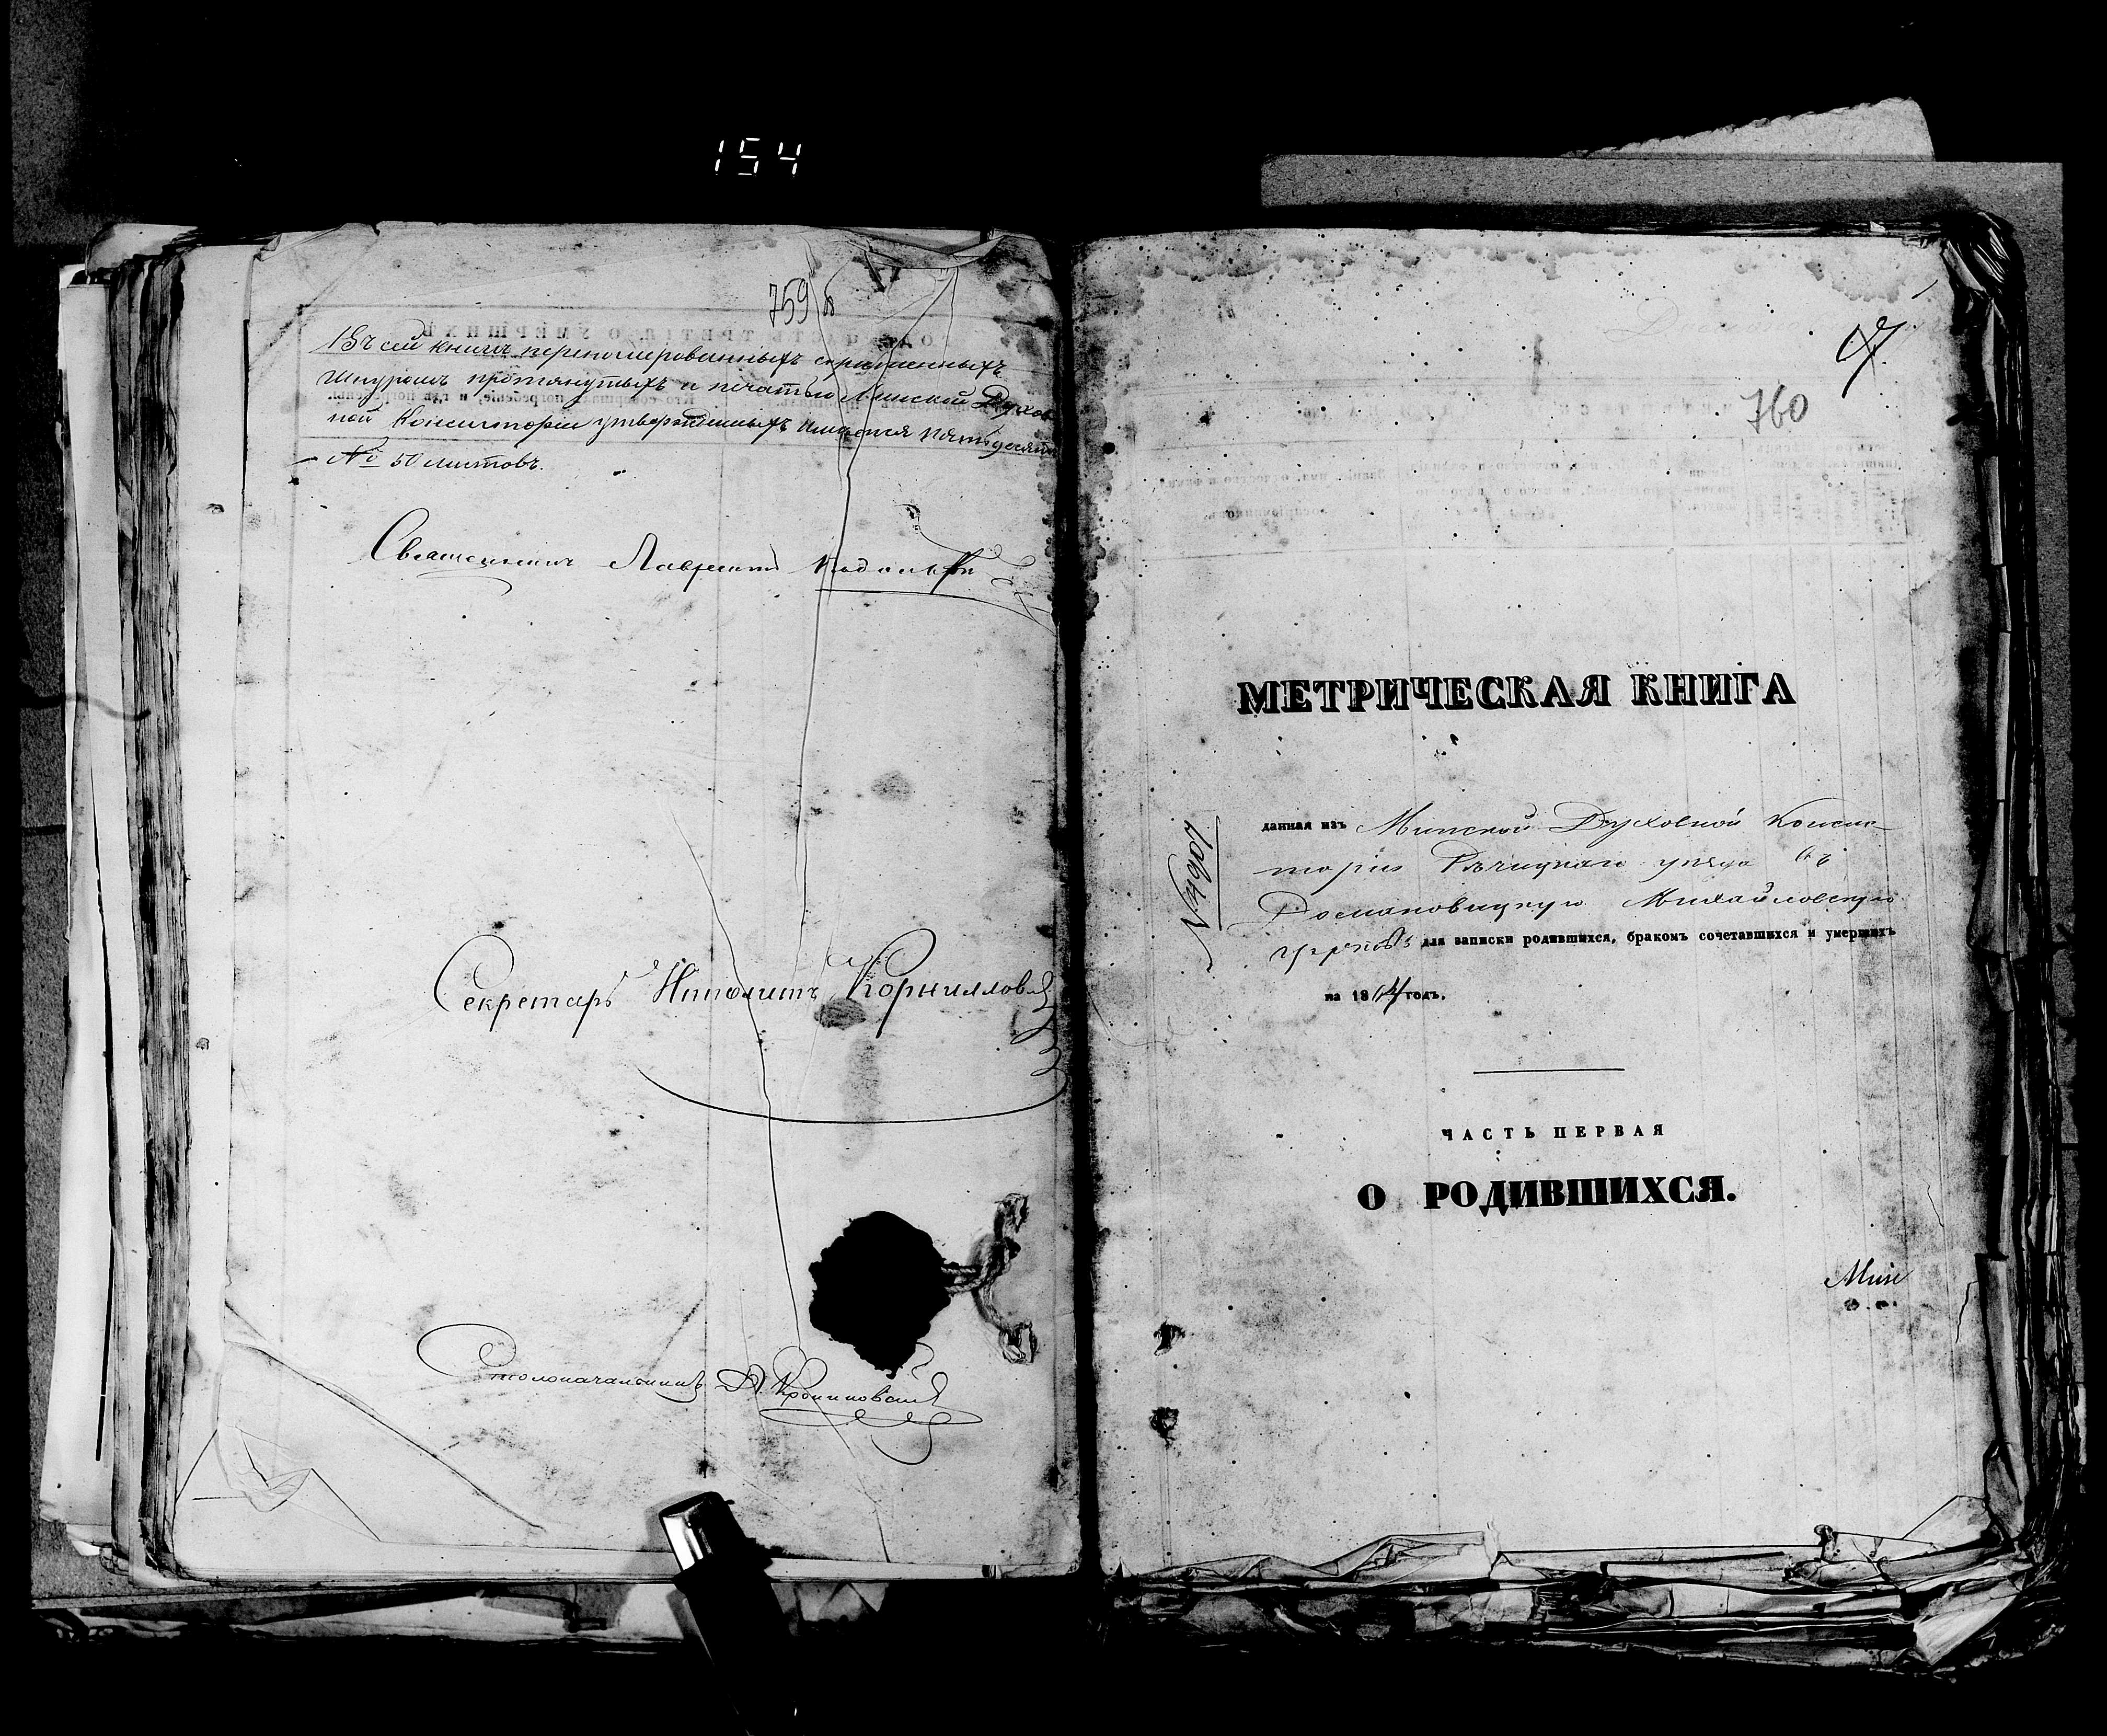 154
759 б
Въ сей книге перенумерованныхъ скрепленныхъ
шнуромъ протянутыхъ и печатью Минской Духов
ной Консисторіи утвержденныхъ имѣется пятьдесятъ
№ 50 листовъ.
Священникъ Лаврентій
Секретарь Ипполитъ Корнилловичъ
Столоначальникъ
1
760
МЕТРИЧЕСКАЯ КНИГА
№4907
данная изъ Минской Духовной Консис-
торіи Рѣчицкаго уѣзда въ
Домановицкую Михайловскую
церковь для записки родившихся, бракомъ сочетавшихся и умершихъ
на 1864 годъ.
ЧАСТЬ ПЕРВАЯ
О РОДИВШИХСЯ.